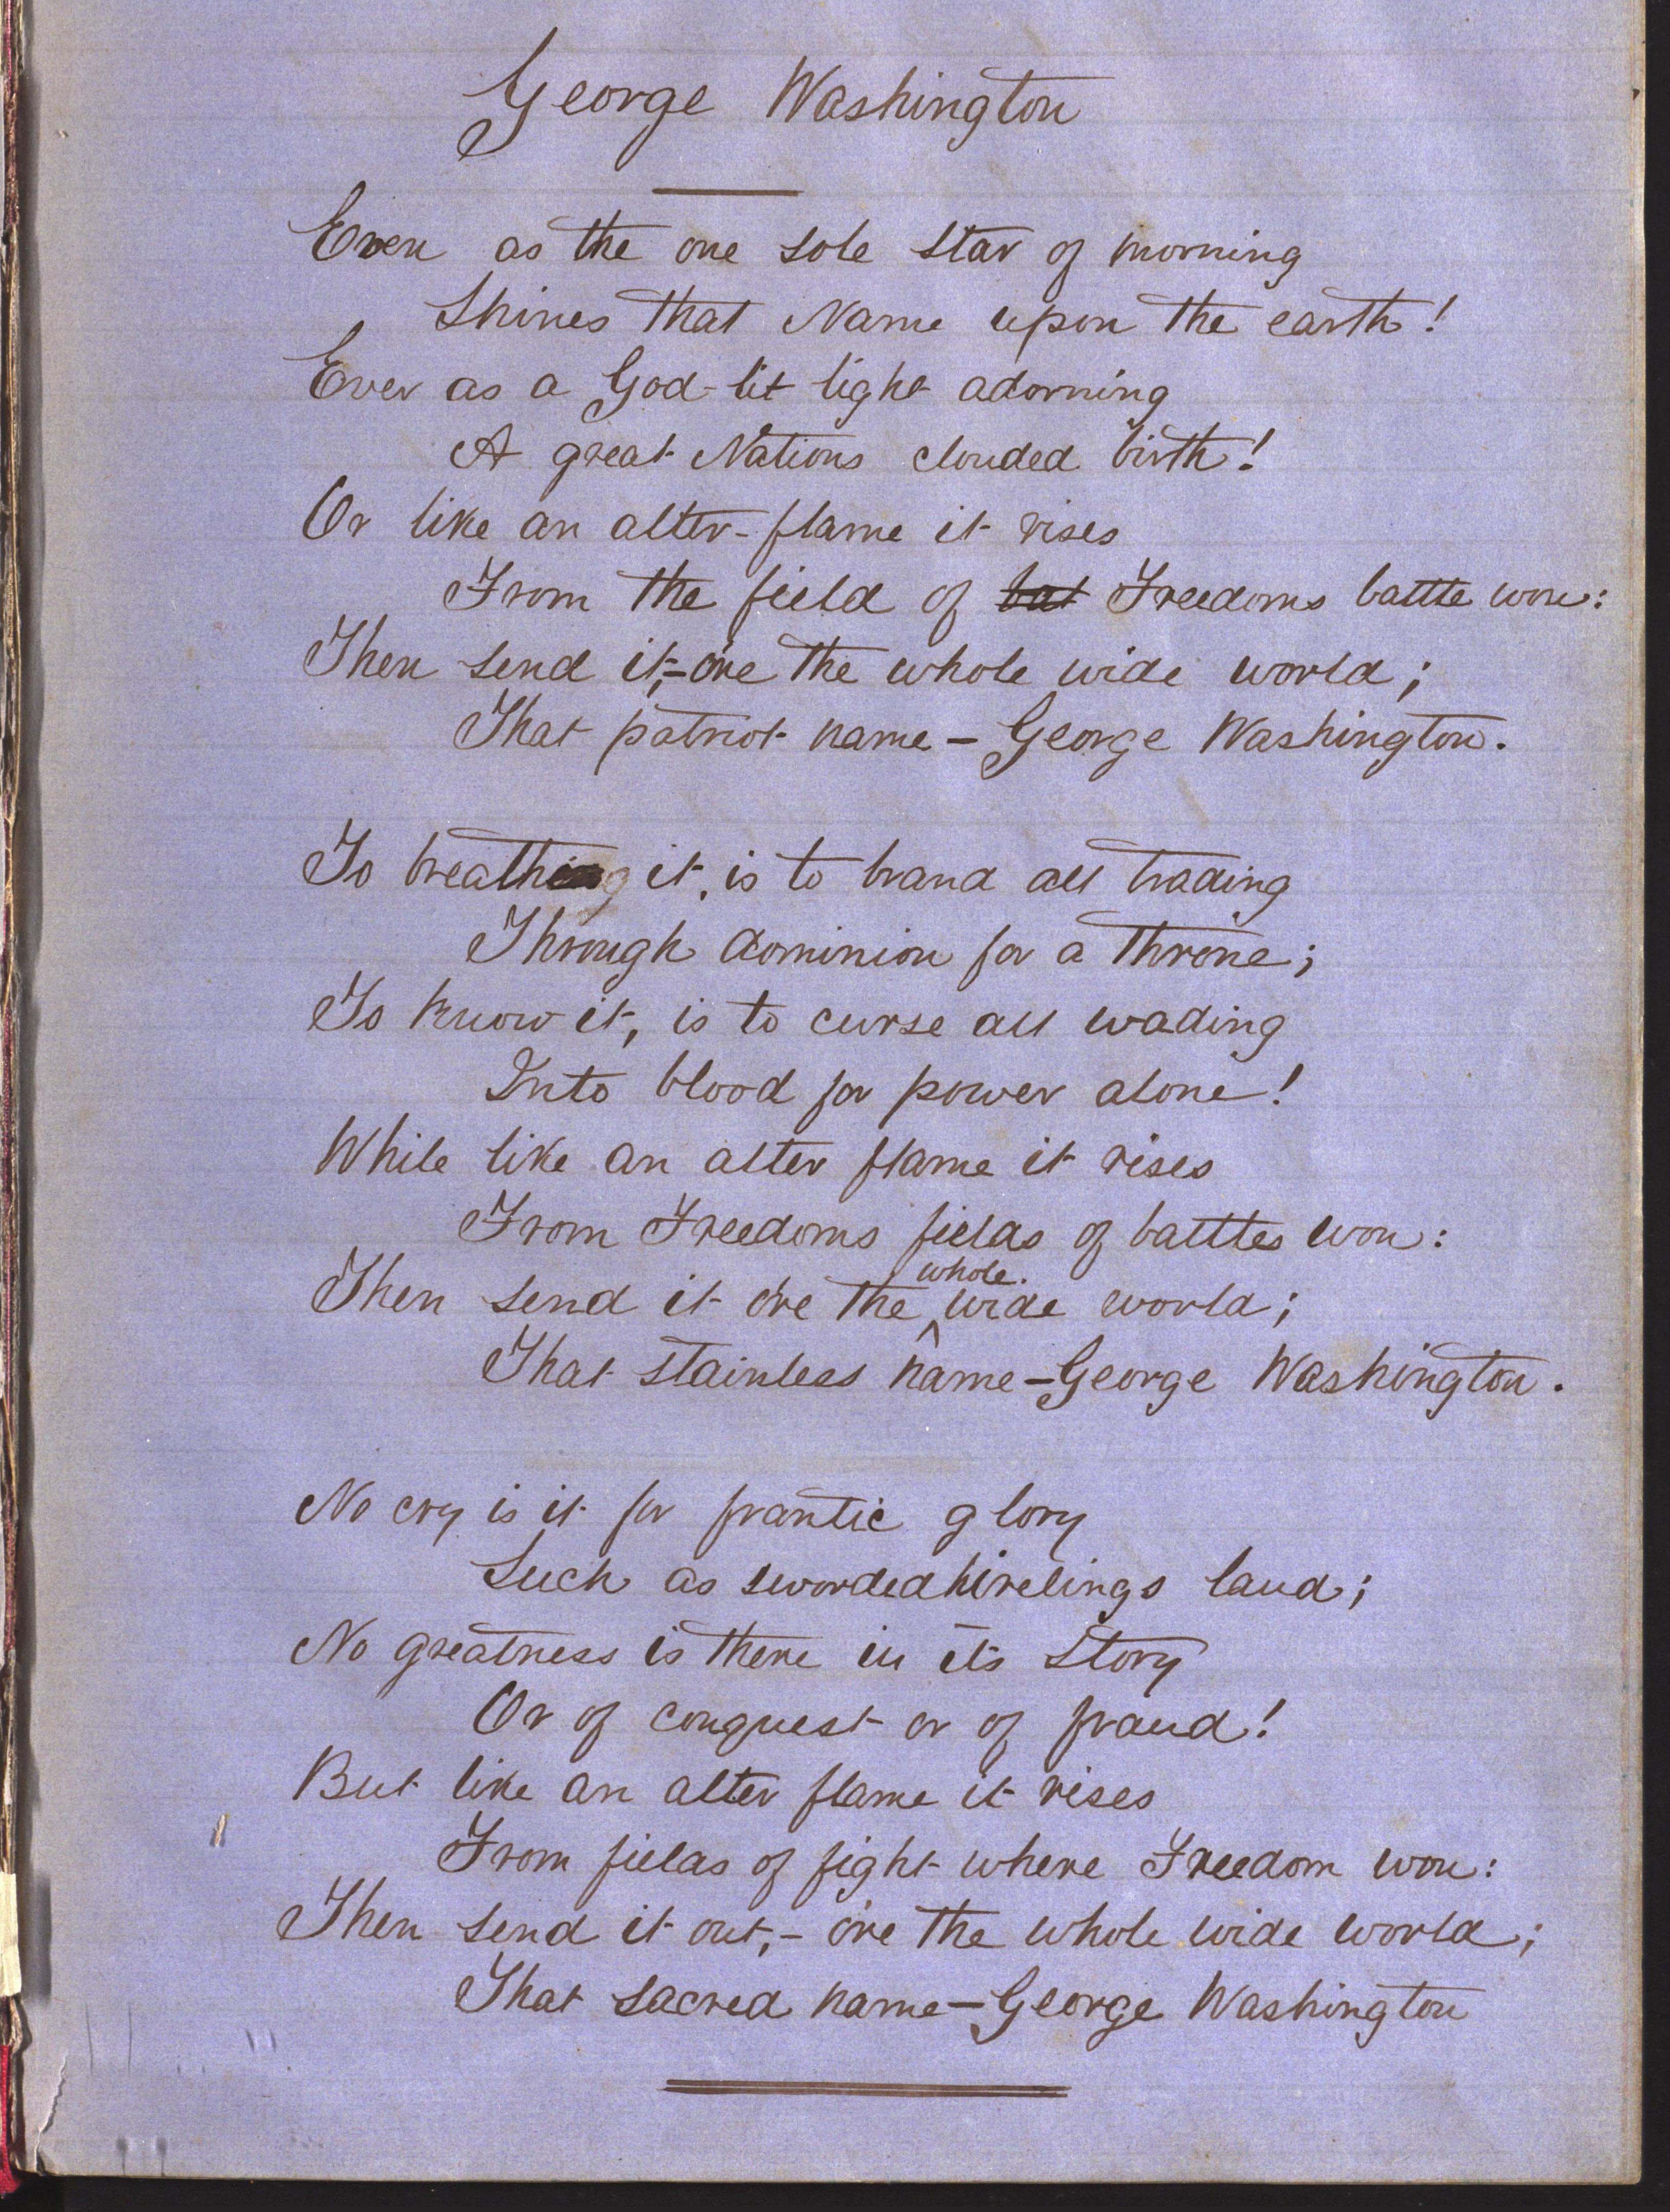 George Washington
Even as the one sole star of morning
Shines that Name upon the earth!
Ever as a God-lit light adorning
A great Nations clouded birth!
Or like an alter-flame it rises
From the field of bat Freedoms battle won:
Then send it,-o're the whole wide world;
That patriot name - George Washington.
To breathing it, is to brand all trading
Through dominion for a throne;
To know it, is to curse all wading
Into blood for power alone!
While like an alter flame it rises
From Freedoms fields of battles won:
Then send it o're the whole wide world;
That stainless name - George Washington.
No cry is it for frantic glory
Such as sworded hirelings laud;
No greatness is there in its story
Or of conquest or of fraud!
But like an alter flame it rises
From fields of fight where Freedom won:
Then send it out,- o're the whole wide world;
That sacred name - George Washington